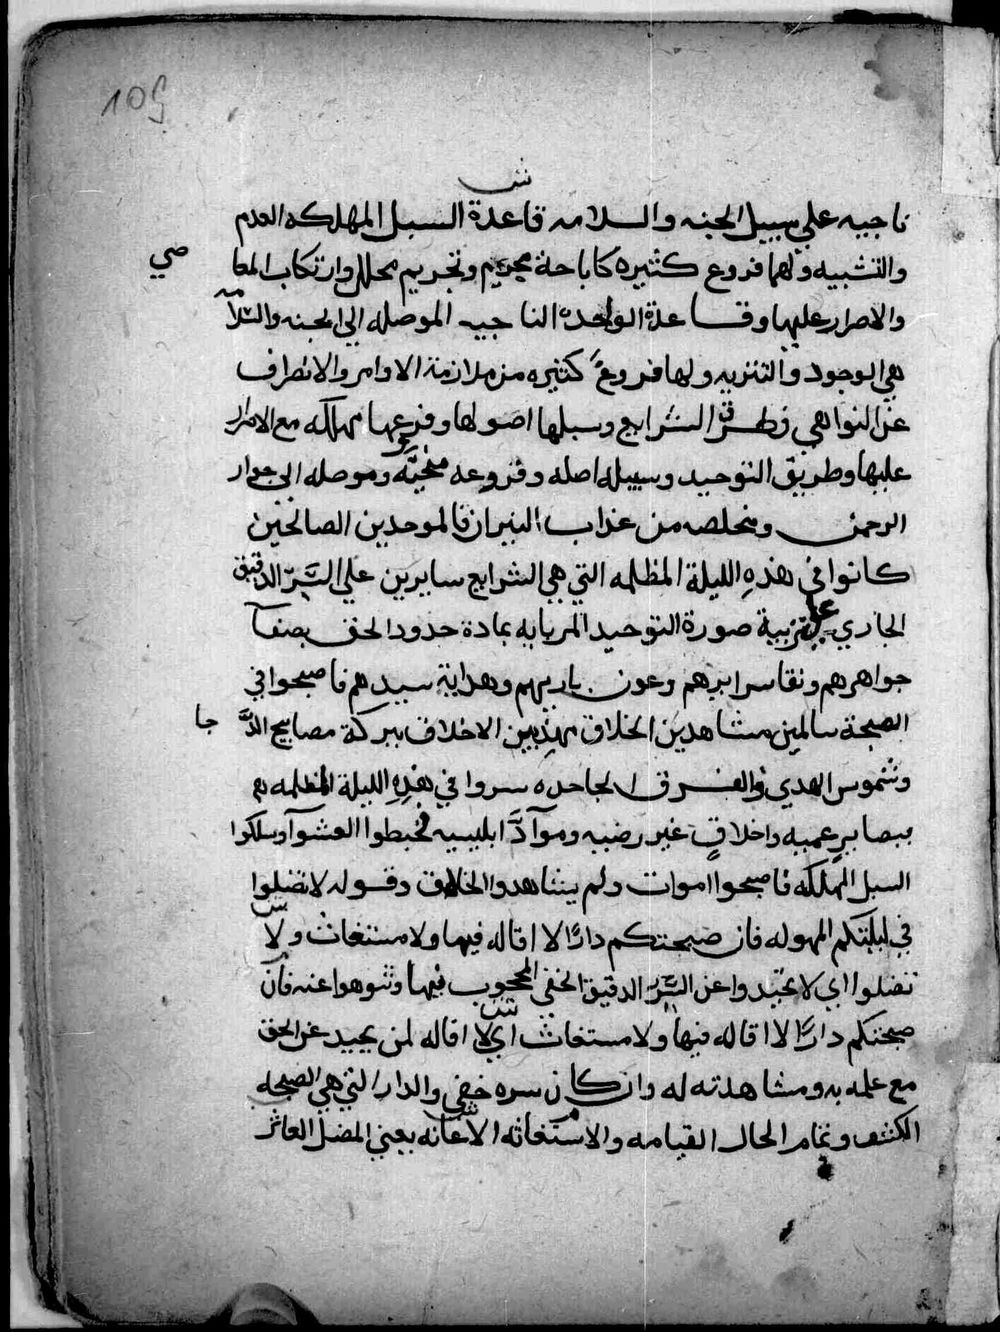 109
ش
ناجيه علي سبيل الجنه والسلامه قاعدة السبل المهلكه العدم
والتشبيه ولهما فروع كثيره كاباحة محرم وتحريم محلل وارتكاب المعا صي
والاصرار عليها وقاعدة الواحده الناجيه الموصله الي الجنه والسلامه
هي الوجود والتنزيه ولها فروعً كثيره من ملازمة الاوامر والانصراف
عن النواهي فطرق الشرايع وسبلها اصولها وفرعها مهلكه مع الاصرار
عليها وطريق التوحيد وسبيله اصله وفروعه منجيَّه وموصله الي جوار
الرحمن ومخلصه من عذاب النيران فالموحدين الصالحين
كانوا في هذهِ الليلة المظلمه التي هي الشرايع سايرين علي السَّرّ الدقيق
الجاري علي تربية صورة التوحيد المربايه بمادة حدود الحق بصفآ
جواهرهم ونقا سرايرهم وعون باريهم وهداية سيدهم فاصبحوا في
الصبحة سالمين مشاهدين الخلاق مهذبين الاخلاق ببركة مصابيح الدُّ جا
وشموس الهدي والفرق الجاحده سروا في هذهِ الليلة المظلمه
ببصاير عميه واخلاقٍ غير رضيه وموآدَّ ابليسيه فخبطوا العشوآ وسلكوا
السبل المهلكه فاصبحوا اموات ولم يشاهدوا الخلاق وقوله لا تضلوا
في ليلتكم المهوله فان صبحتكم دارًا لا اقاله فيها ولا مستغاث ولا
ش
تضلوا اي لا تحيدوا عن السَّر الدقيق الخفي المحجوب فيها وتتوهوا عنه فان
صبحتكم دارًا لا اقاله فيها ولا مستغاث اي لا اقاله لمن يحيد عن الحق
ش
مع علمه به ومشاهدته له وان كان سره خفي والدار التي هي الصبحه
الكشف وتمام الحال القيامه والاستغاثه الاعانه يعني المضل العاثر